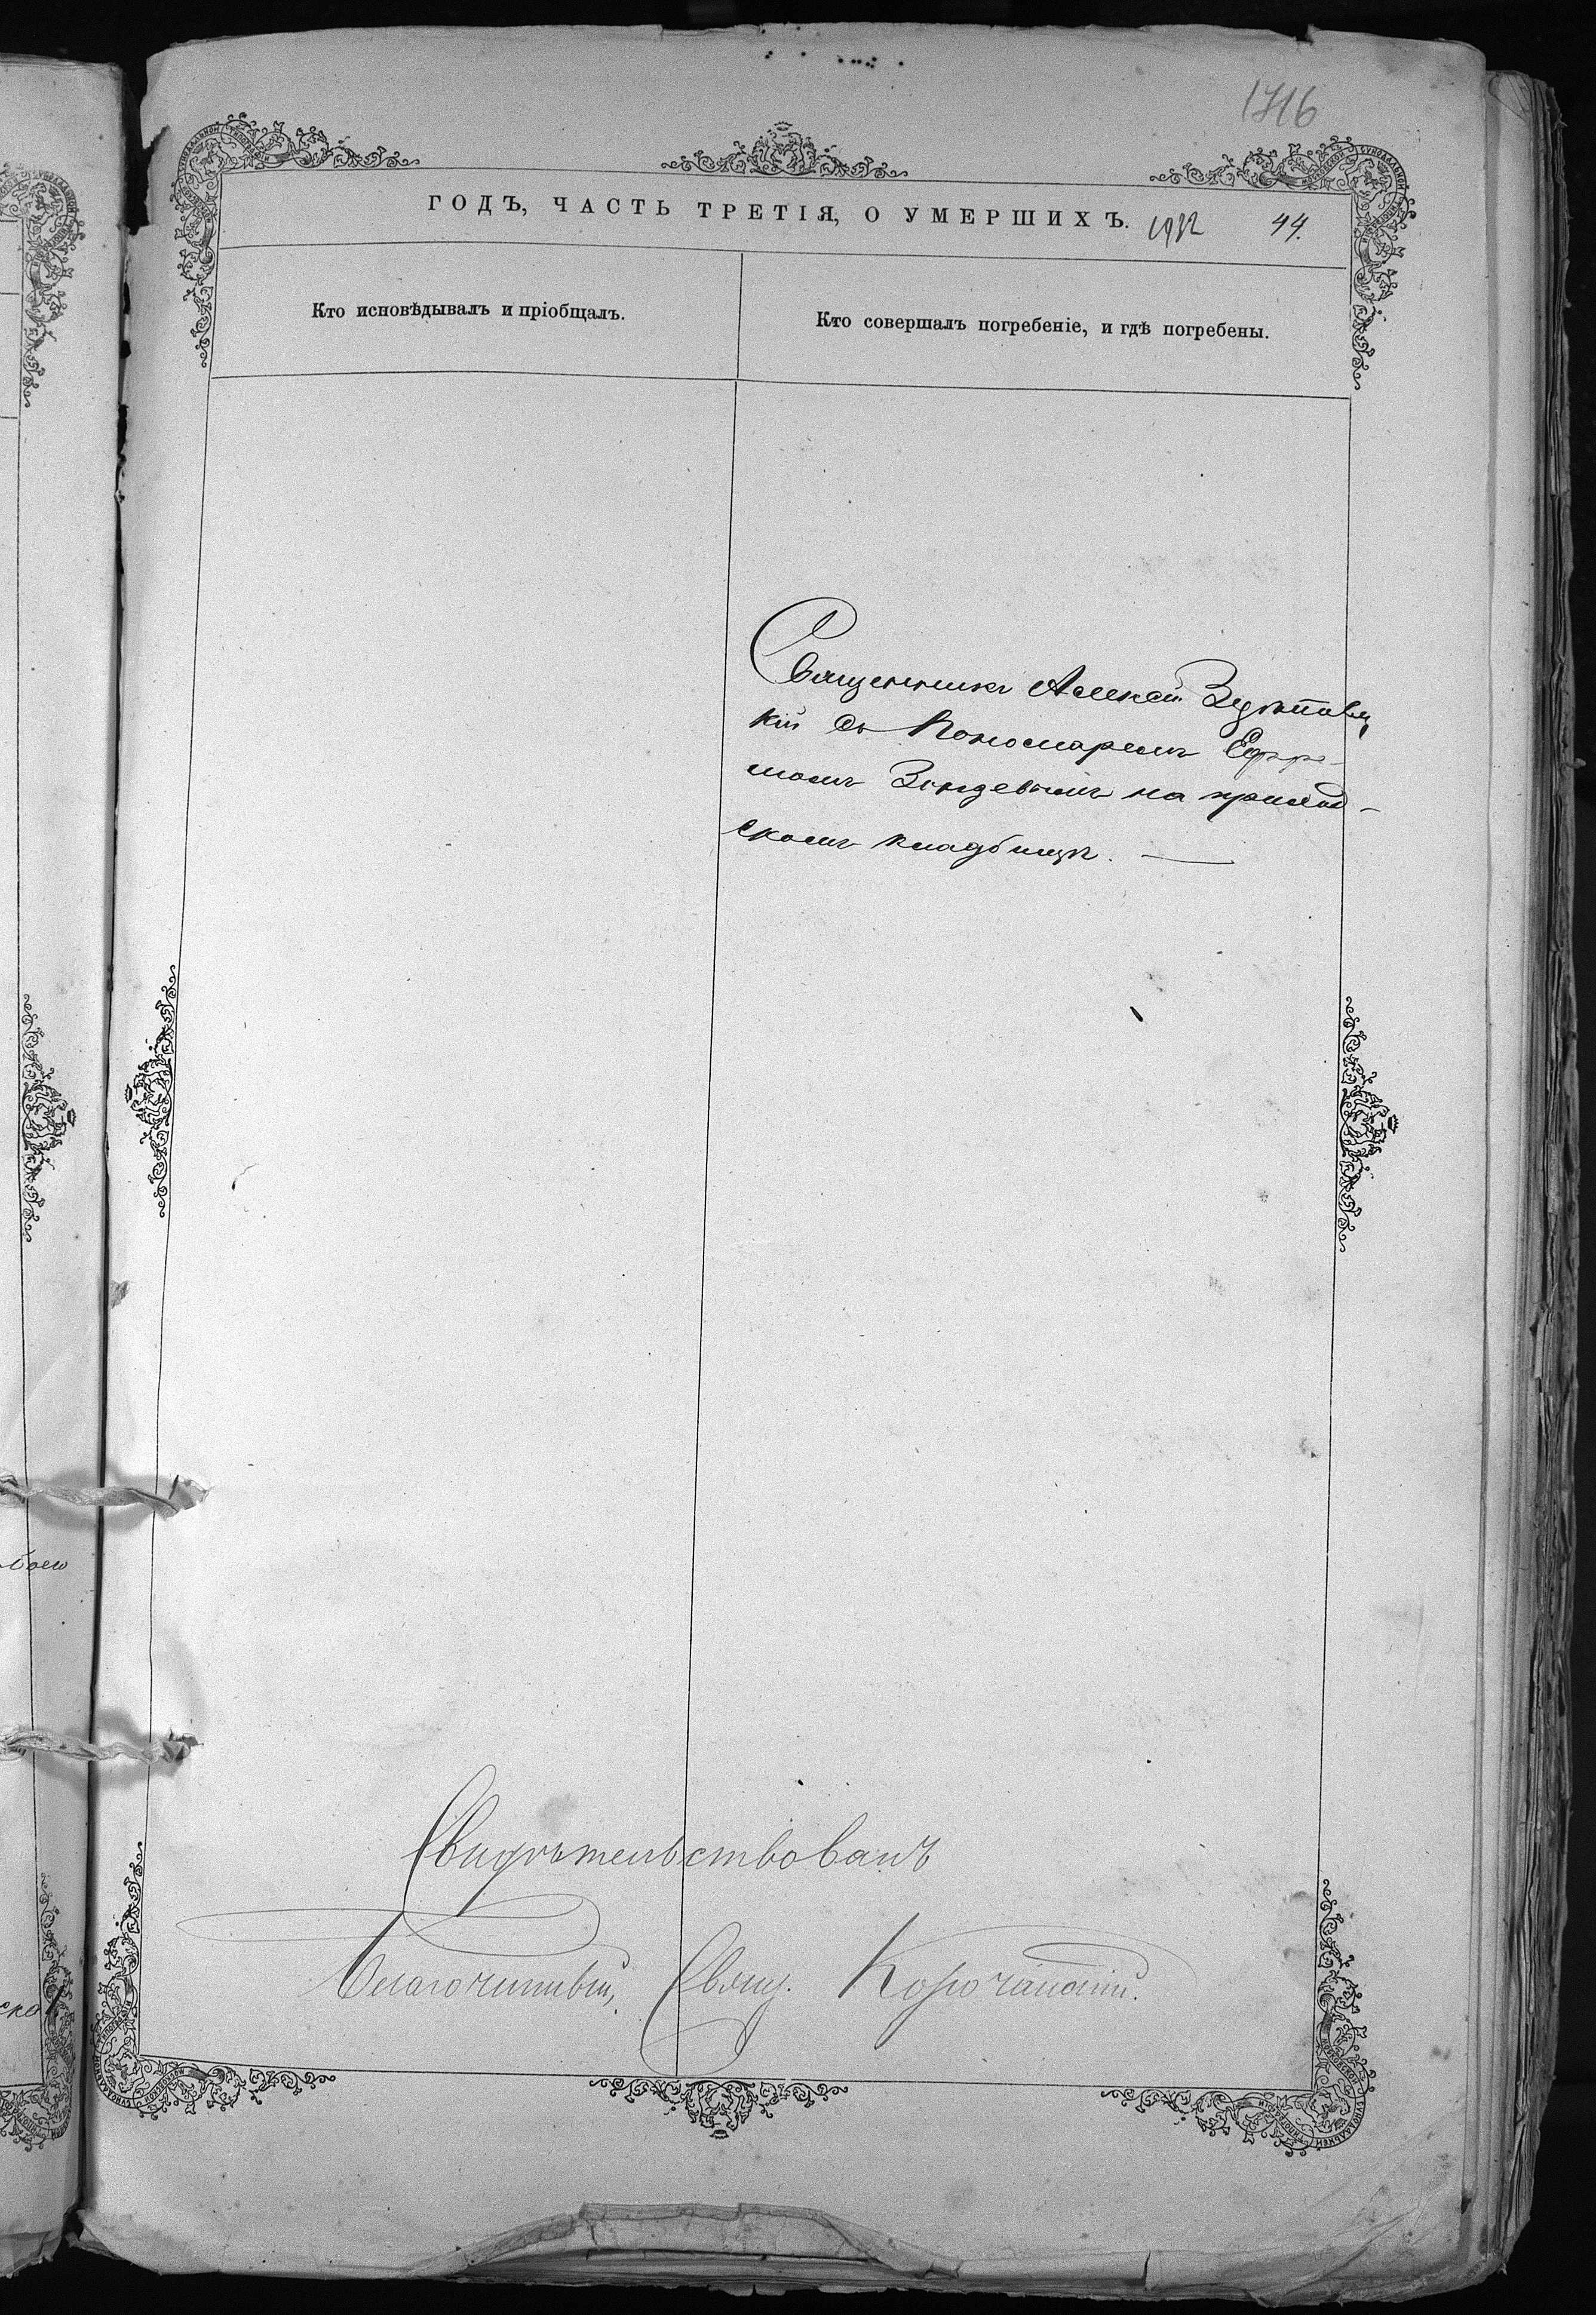 1716
ГОДЪ, ЧАСТЬ ТРЕТІЯ, О УМЕРШИХЪ. 44.
Кто исповѣдывалъ и пріобщалъ.
Кто совершалъ погребеніе, и гдѣ погребены.
Священникъ Алексѣй
кій съ Пономаремъ Ефре-
момъ на приход-
скомъ кладбищѣ. —
Свидѣтельствовалъ
Благочинный, Свящ. Корочанскій.